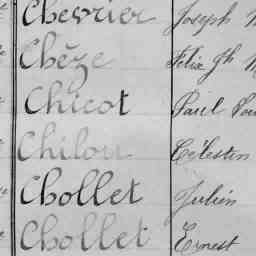 Chevrier Joseph
Chèze Félix Jh
Chicot Paul
Chilou Célestin
Chollet Julien
Chollet Ernest